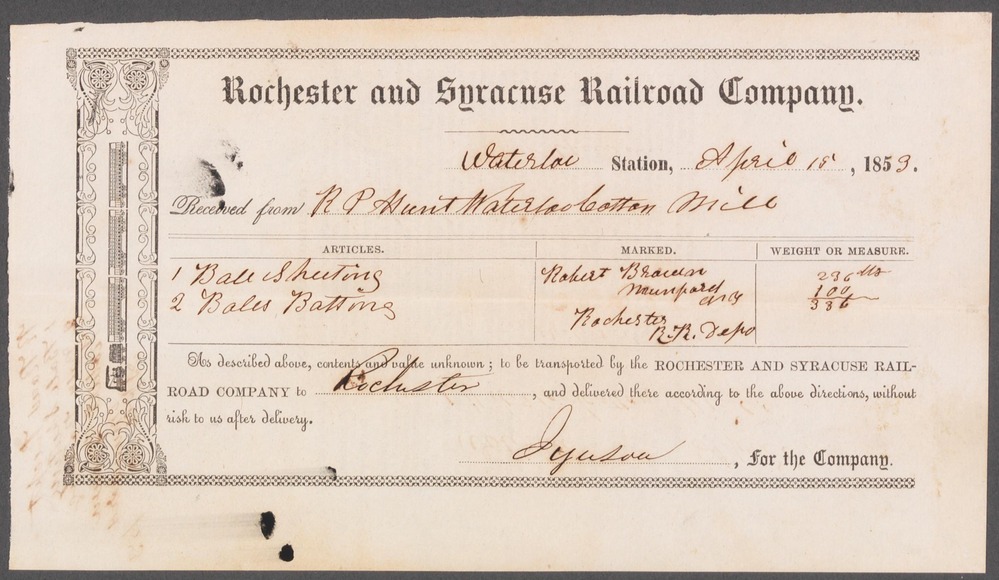 Rochester and Syracuse Railroad Company.
Waterloo Station, April 15, 1853.
Received from R P Hunt Waterloo Cotton Mill
ARTICLES. MARKED. WEIGHT OR MEASURE.
1 Bale Sheeting Robert Brown 236 lbs
Mumford 100
2 Bales Batting 336
Rochester
R.R. Depo
As described above, contents and value unknown; to be transported by the ROCHESTER AND SYRACUSE RAIL-
ROAD COMPANY to Rochester, and delivered there according to the above directions, without
risk to us after delivery.
, For the Company.